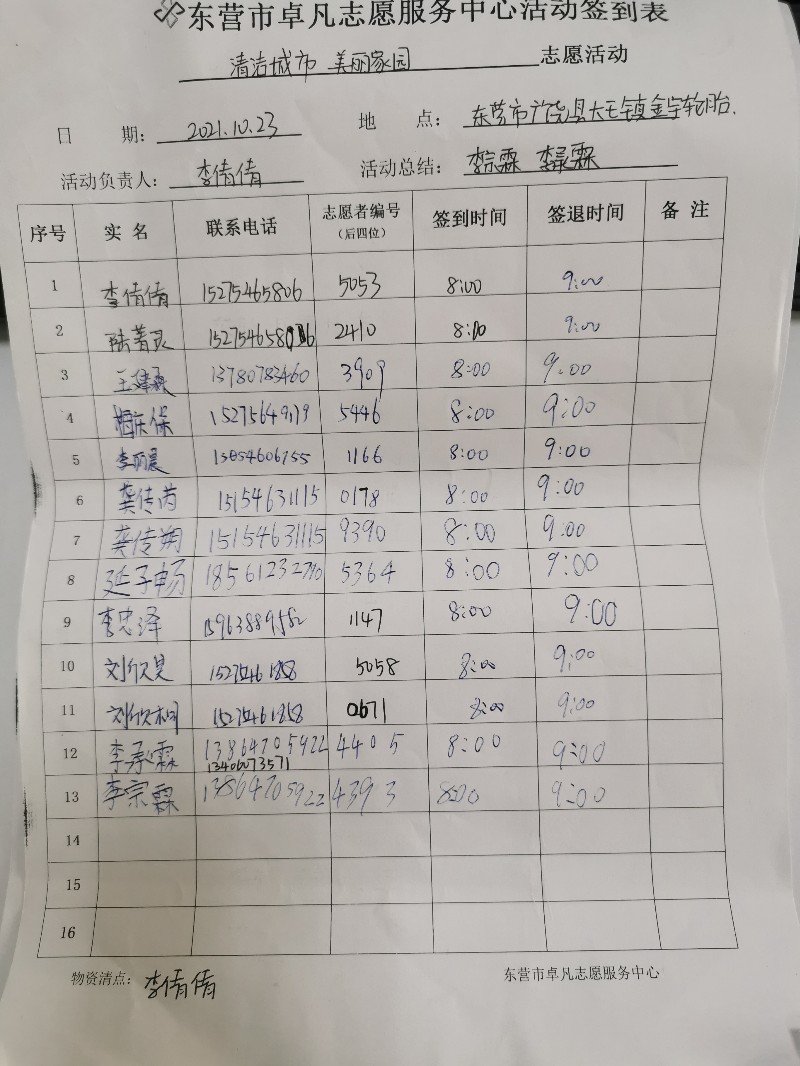 东营市卓凡志愿服务中心活动签到表
清洁城市 美丽家园 志愿活动
日 期: 2021.10.23 地 点: 东营市广饶县大王镇金宇轮胎.
活动负责人: 李倩倩 活动总结: 李宗霖 李承霖
序号 实 名 联系电话 志愿者编号 (后四位) 签到时间 签退时间 备 注
1 李倩倩 15275465806 5053 8:00 9:00
2 15275465806 2410 8:00 9:00
3 13780783460 3909 8:00 9:00
4 5446 8:00 9:00
5 李丽晨 1166 8:00 9:00
6 龚传芮 15154631115 0178 8:00 9:00
7 龚传翔 15154631115 9390 8:00 9:00
8 延子畅 18561232790 5364 8:00 9:00
9 李忠泽 15963889582 1147 8:00 9:00
10 刘欣昊 15275461858 5058 8:00 9:00
11 刘欣桐 15275461858 0671 8:00 9:00
12 李承霖 13864705922 4405 8:00 9:00
13406073571
13 李宗霖 13864705922 4393 8:00 9:00
14
15
16
物资清点: 李倩倩 东营市卓凡志愿服务中心